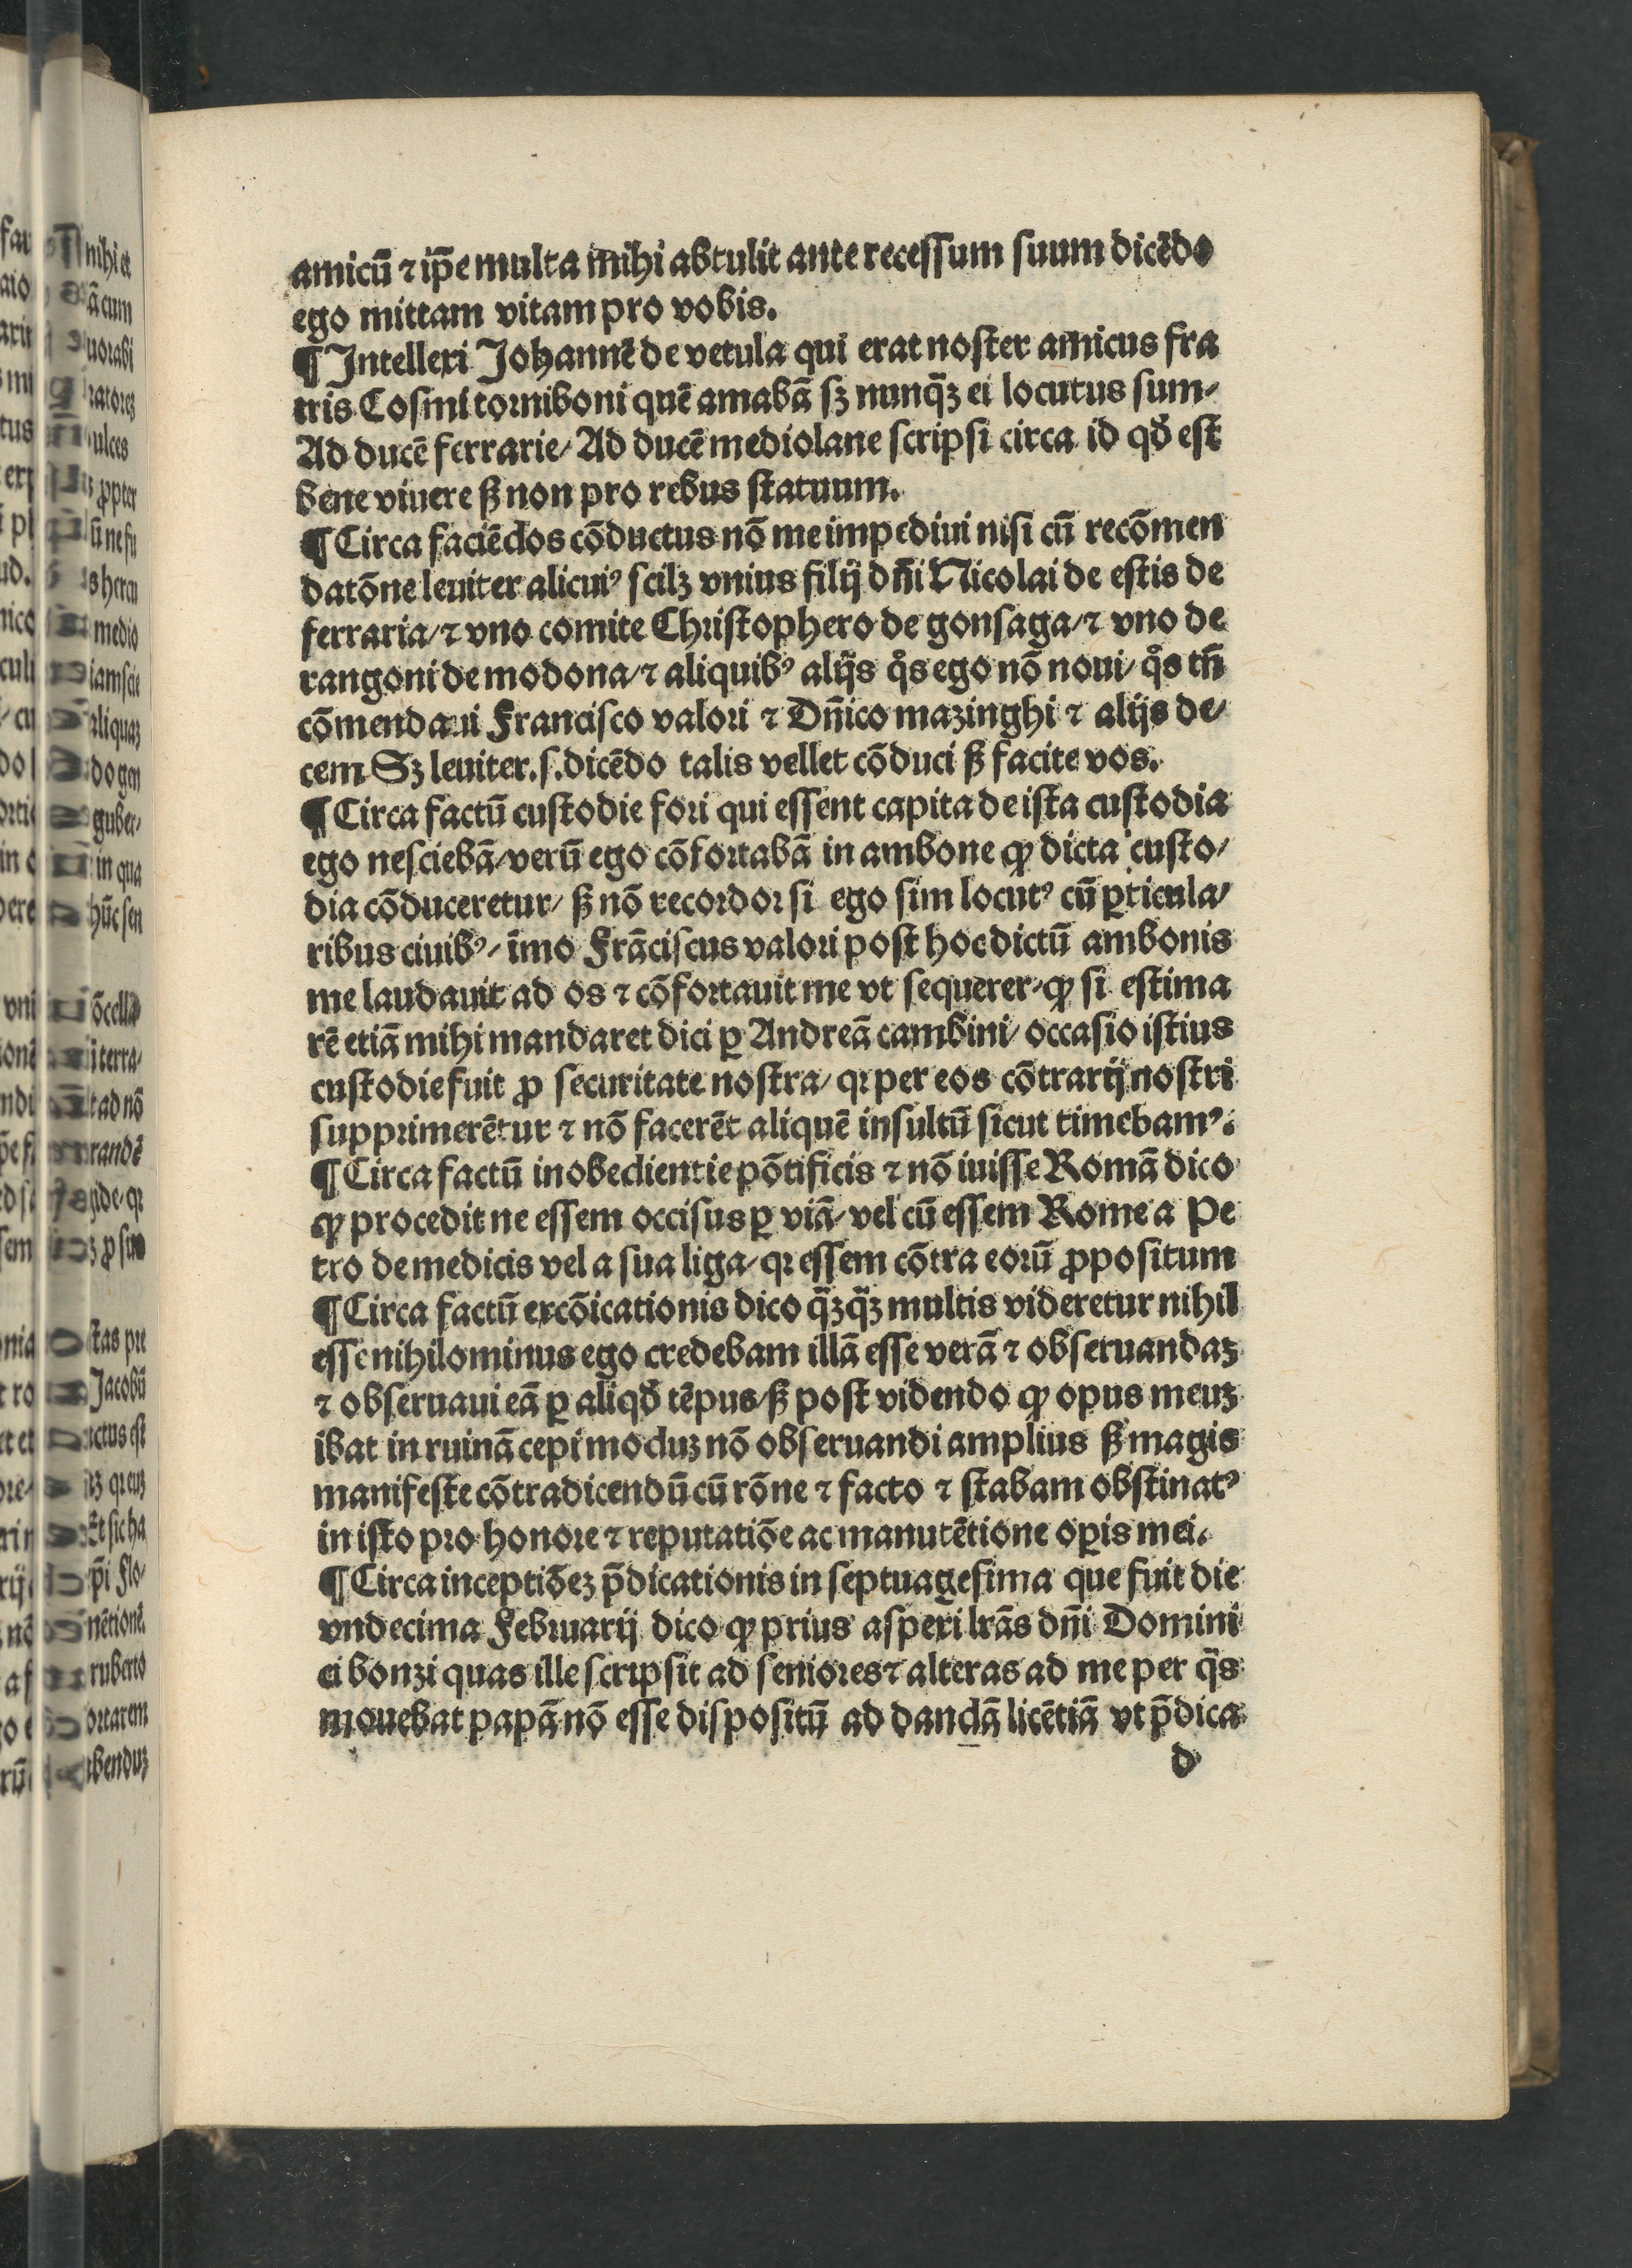 amicū ⁊ ip̄e multa mihi abtulit ante recessum suum dicēdo
ego mittam vitam pro vobis.
¶ Intellexi Johannē de vetula qui erat noster amicus fra
tris Cosmi torniboni quē amabā sꝫ nunq̄ꝫ ei locutus sum⸗
Ad ducē ferrarie/ Ad ducē mediolane scripsi circa id qd̄ est
bene viuere sꝫ non pro rebus statuum.
¶ Circa faciēdos cōductus nō me impediui nisi cū recōmen
datōne leuiter alicuiꝰ scilꝫ vnius filij dn̄i Nicolai de estis de
ferraria/ ⁊ vno comite Christophero de gonsaga/ ⁊ vno de
rangoni de modona/ ⁊ aliquibꝰ alijs qͦs ego nō noui/ qͦs tn̄
cōmendaui Francisco valori ⁊ Dn̄ico mazinghi ⁊ alijs de/
cem Sꝫ leuiter.s.dicēdo talis vellet cōduci sꝫ facite vos.
¶ Circa factū custodie fori qui essent capita de ista custodia
ego nesciebā/ verū ego cōfortabā in ambone ꝙ dicta custo/
dia cōduceretur/ sꝫ nō recordor si ego sim locutꝰ cū ꝑticula/
ribus ciuibꝰ/ īmo Frāciscus valori post hoc dictū ambonis
me laudauit ad os ⁊ cōfortauit me vt sequerer/ ꝙ si estima
rē etiā mihi mandaret dici ꝑ Andreā cambini/ occasio istius
custodie fuit ꝓ securitate nostra/ qꝛ per eos cōtrarij nostri
supprimerētur ⁊ nō facerēt aliquē insultū sicut timebamꝰ.
¶ Circa factū inobedientie pōtificis ⁊ nō iuisse Romā dico
ꝙ procedit ne essem occisus ꝑ viā/ vel cū essem Rome a Pe
tro de medicis vel a sua liga/ qꝛ essem cōtra eorū ꝓpositum
¶ Circa factū excōicationis dico q̄ꝫq̄ꝫ multis videretur nihil
esse nihilominus ego credebam illā esse verā ⁊ obseruandaꝫ
⁊ obseruaui eā ꝑ aliqd̄ tēpus/ sꝫ post videndo ꝙ opus meuꝫ
ibat in ruinā cepi moduꝫ nō obseruandi amplius sꝫ magis
manifeste cōtradicendū cū rōne ⁊ facto ⁊ stabam obstinatꝰ
in isto pro honore ⁊ reputatiōe ac manutētione oꝑis mei.
¶ Circa inceptiōeꝫ p̄dicationis in septuagesima que fuit die
vndecima Februarij dico ꝙ prius aspexi lr̄as dn̄i Domini
ci bonzi quas ille scripsit ad seniores ⁊ alteras ad me per q̄s
mouebat papā nō esse dispositū ad dandā licētiā vt p̄dica
d